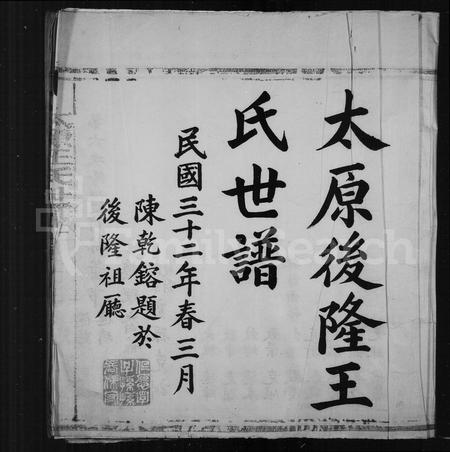 太原後隆王
氏世譜
民國三十二年春三月
陳乾鎔題於
後隆祖廳
FamilySearch